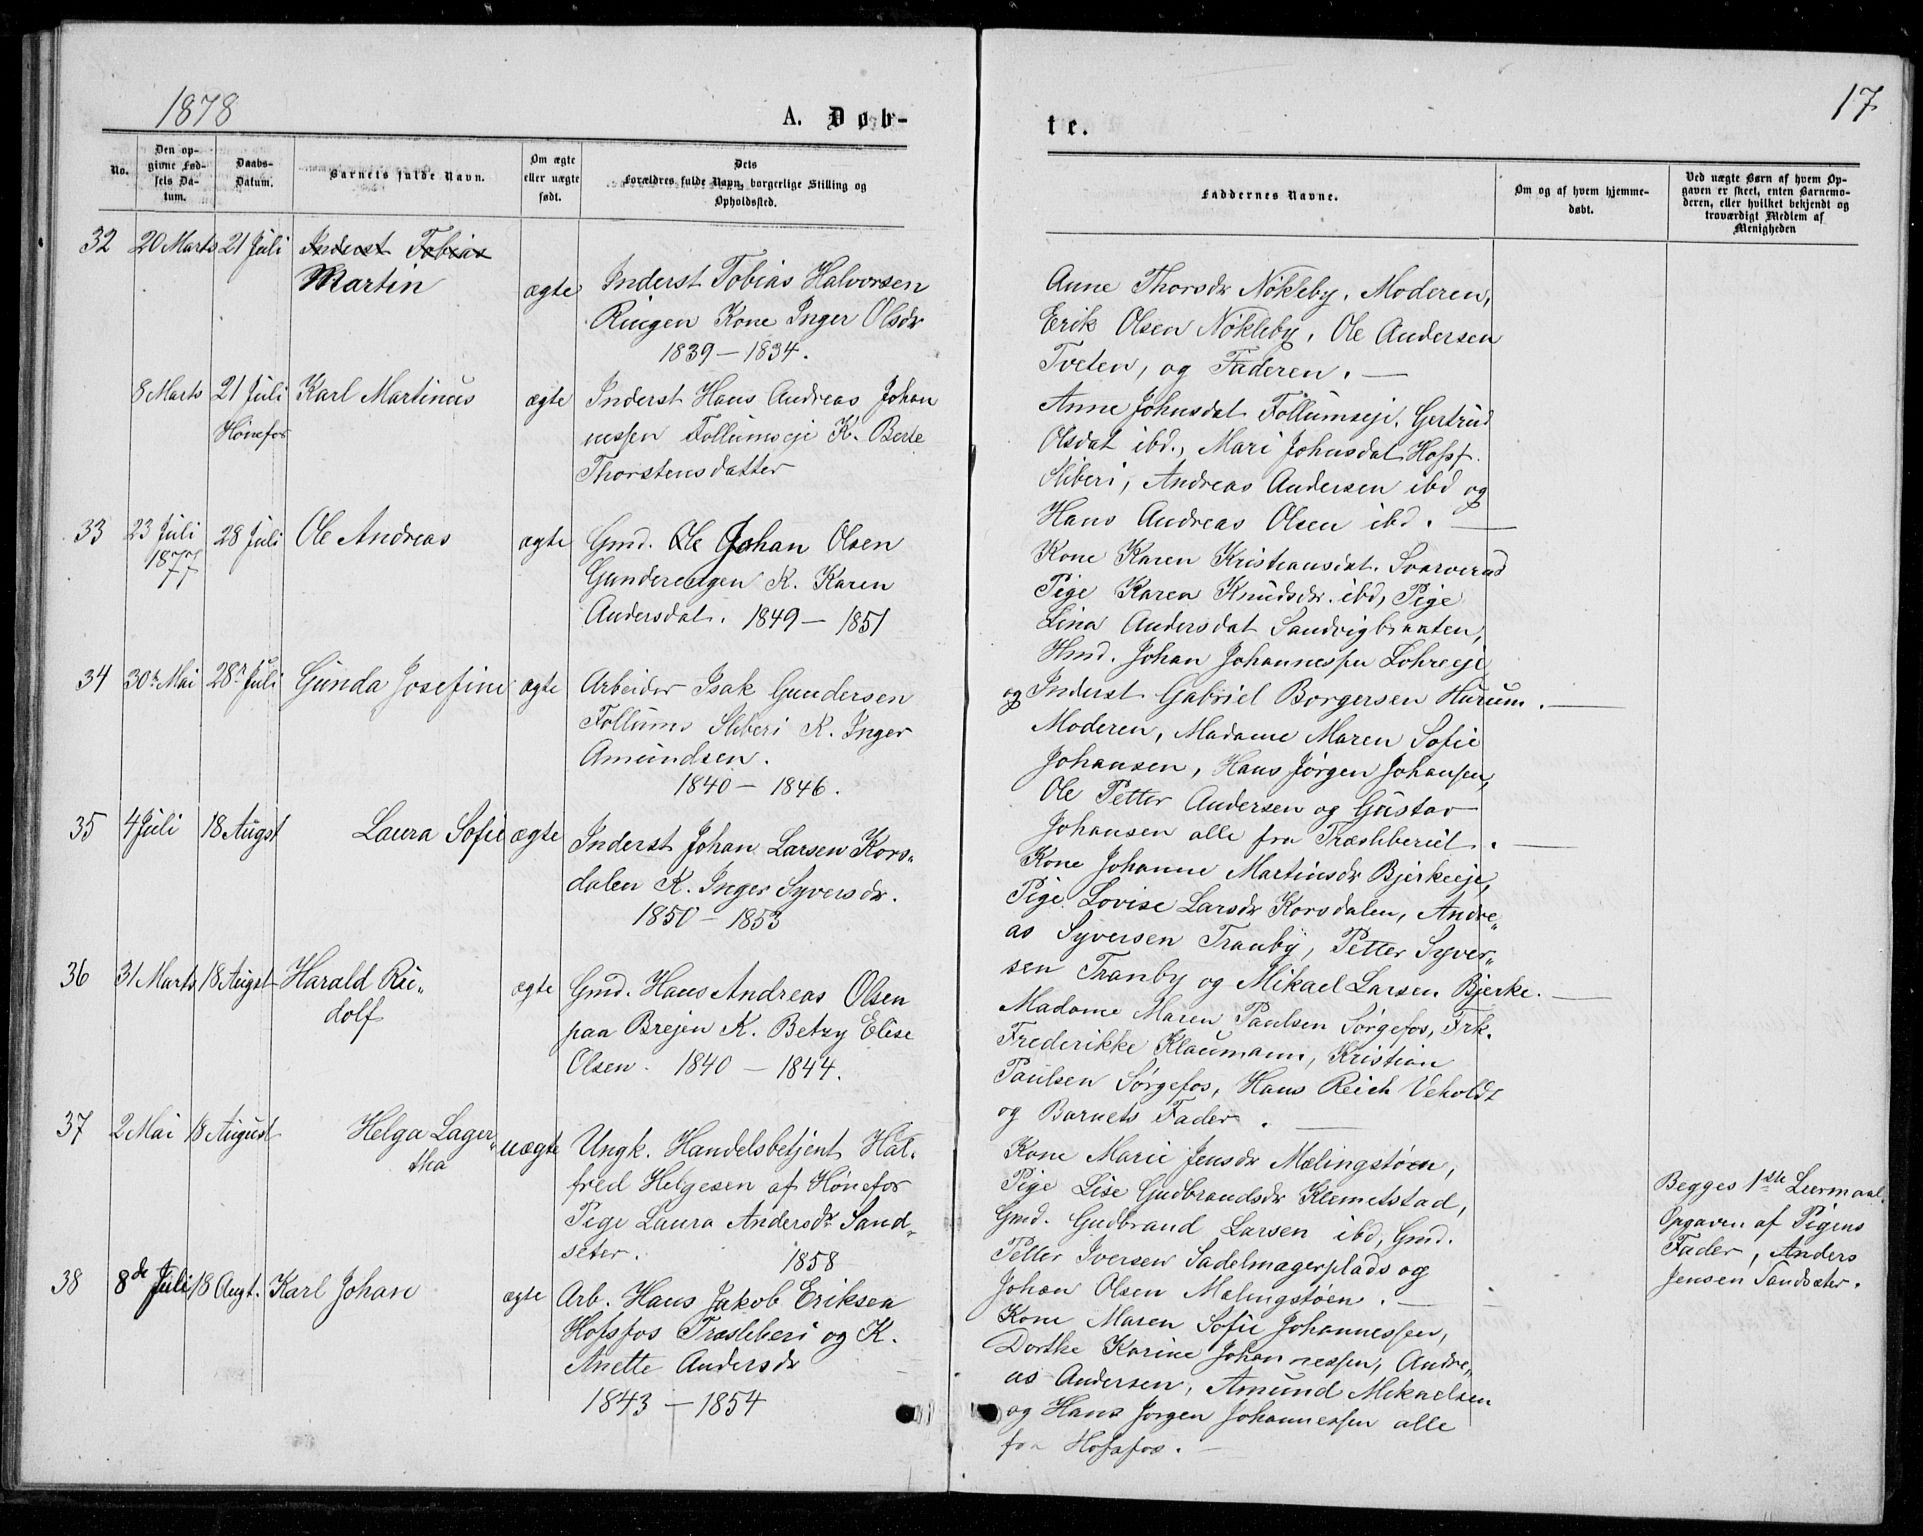 1878
A. Døb-
No.
Den op-
givne Fød-
sels Da-
tum.
Daabs-
Datum.
Barnets fulde Navn.
Om ægte
eller uægte
født.
Dets
Forældres fulde Navn, borgerlige Stilling og
Opholdssted.
32 20 Marts 21 Juli Inderst Tobias
Martin ægte Inderst Tobias Halvorsen
Ringen Kone Inger Olsdr
1839 – 1834.
8 Marts 21 Juli Karl Martinus ægte Inderst Hans Andreas Johan
Hønefos nessen Follumseje K. Berte
Thorstensdatter
33 23 Juli 28 Juli Ole Andreas ægte Gmd. Ole Johan Olsen
1877 Gunderengen K. Karen
Andersdat. 1849 – 1851
34 30te Mai 28de Juli Gunda Josefine ægte Arbeider Isak Gundersen
Follums Sliberi K. Inger
Amundsen.
1840 – 1846.
35 4 Juli 18 Augst Laura Sofie ægte Inderst Johan Larsen Kors-
dalen K. Inger Syversdr.
1850 – 1853
36 31 Marts 18 Augst Harald Ru- ægte Gmd. Hans Andreas Olsen
dolf paa Brejen K. Betzy Elise
Olsen. 1840 – 1844.
37 2 Mai 18 August Helga Lager- uægte Ungk. Handelsbetjent Hal-
tha fred Helgesen af Hønefos
Pige Laura Andersdr Sand-
seter. 1858
38 8de Juli 18 Augt. Karl Johan ægte Arb. Hans Jakob Eriksen
Hofsfos Træsleberi og K.
Anette Andersdr
1843 – 1854
17
te.
Faddernes Navne.
Om og af hvem hjemme-
døbt.
Ved uægte Børn af hvem Op-
gaven er skeet, enten Barnemo-
deren, eller hvilket bekjendt og
troværdigt Medlem af
Menigheden
Anne Thorsdr Nøkleby, Moderen,
Erik Olsen Nøkleby, Ole Andersen
Tveten, og Faderen. —
Anne Johnsdat Follumseje, Gertrud
Olsdat ibd., Mari Johnsdat Hofsf.
Sliberi, Andreas Andersen ibd og
Hans Andreas Olsen ibd. —
Kone Karen Kristiansdat. Svarverud
Pige Karen Knudsdr. ibd, Pige
Lina Andersdat Sandvigbraaten,
Hmd. Johan Johannessen Lohreeje
og Inderst Gabriel Borgersen Hurum. —
Moderen, Madame Maren Sofie
Johansen, Hans Jørgen Johansen,
Ole Petter Andersen og Gustav
Johansen alle fra Træsliberiet. —
Kone Johanne Martinsdr Bjerkeeje,
Pige Lovise Larsdr Korsdalen, Andre-
as Syversen Tranby, Petter Syver-
sen Tranby og Mikael Larsen Bjerke. —
Madame Maren Paulsen Sørgefos, Frk.
Frederikke Klaumann, Kristian
Paulsen Sørgefos, Hans Reich Veholdt
og Barnets Fader. —
Kone Marie Jensdr Mælingstøen,
Pige Lise Gudbrandsdr Klemetstad,
Gmd. Gudbrand Larsen ibd, Gmd.
Petter Iversen Sadelmagerplads og
Johan Olsen Malingstøen. —
Begges 1ste Leiermaal.
Opgaven af Pigens
Fader, Anders
Jensen Sandsæter.
Kone Maren Sofie Johannessen,
Dorthe Karine Johannessen, Andre-
as Andersen, Amund Mikaelsen
og Hans Jørgen Johannessen alle
fra Hofsfos. —